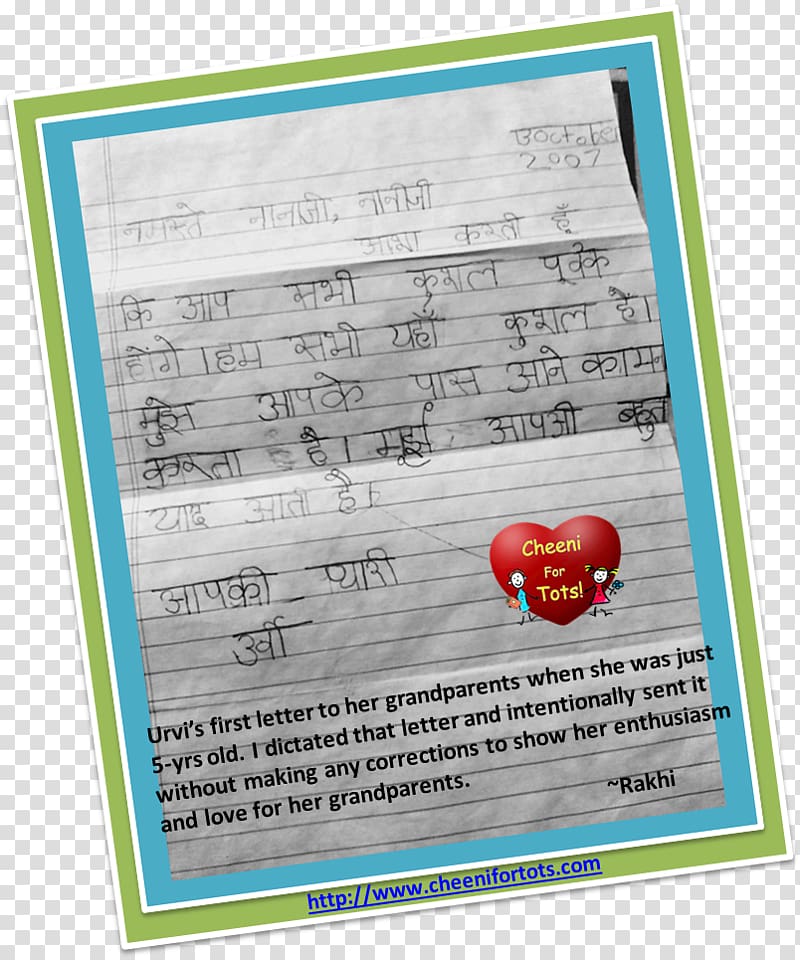 3October
2007
नमस्ते नानाजी, नानीजी
आशा करती हूँ
कि आप सभी कुशल पूर्वक
होंगे ।हम सभी यहाँ कुशल है।
मुझे आपके पास आने का मन
करता है। मूझे आपकी बहुत
याद आती है।
आपकी प्यारी
उर्वी
Cheeni
For
Tots!
Urvi’s first letter to her grandparents when she was just
5-yrs old. I dictated that letter and intentionally sent it
without making any corrections to show her enthusiasm
and love for her grandparents. ~Rakhi
http://www.cheenifortots.com